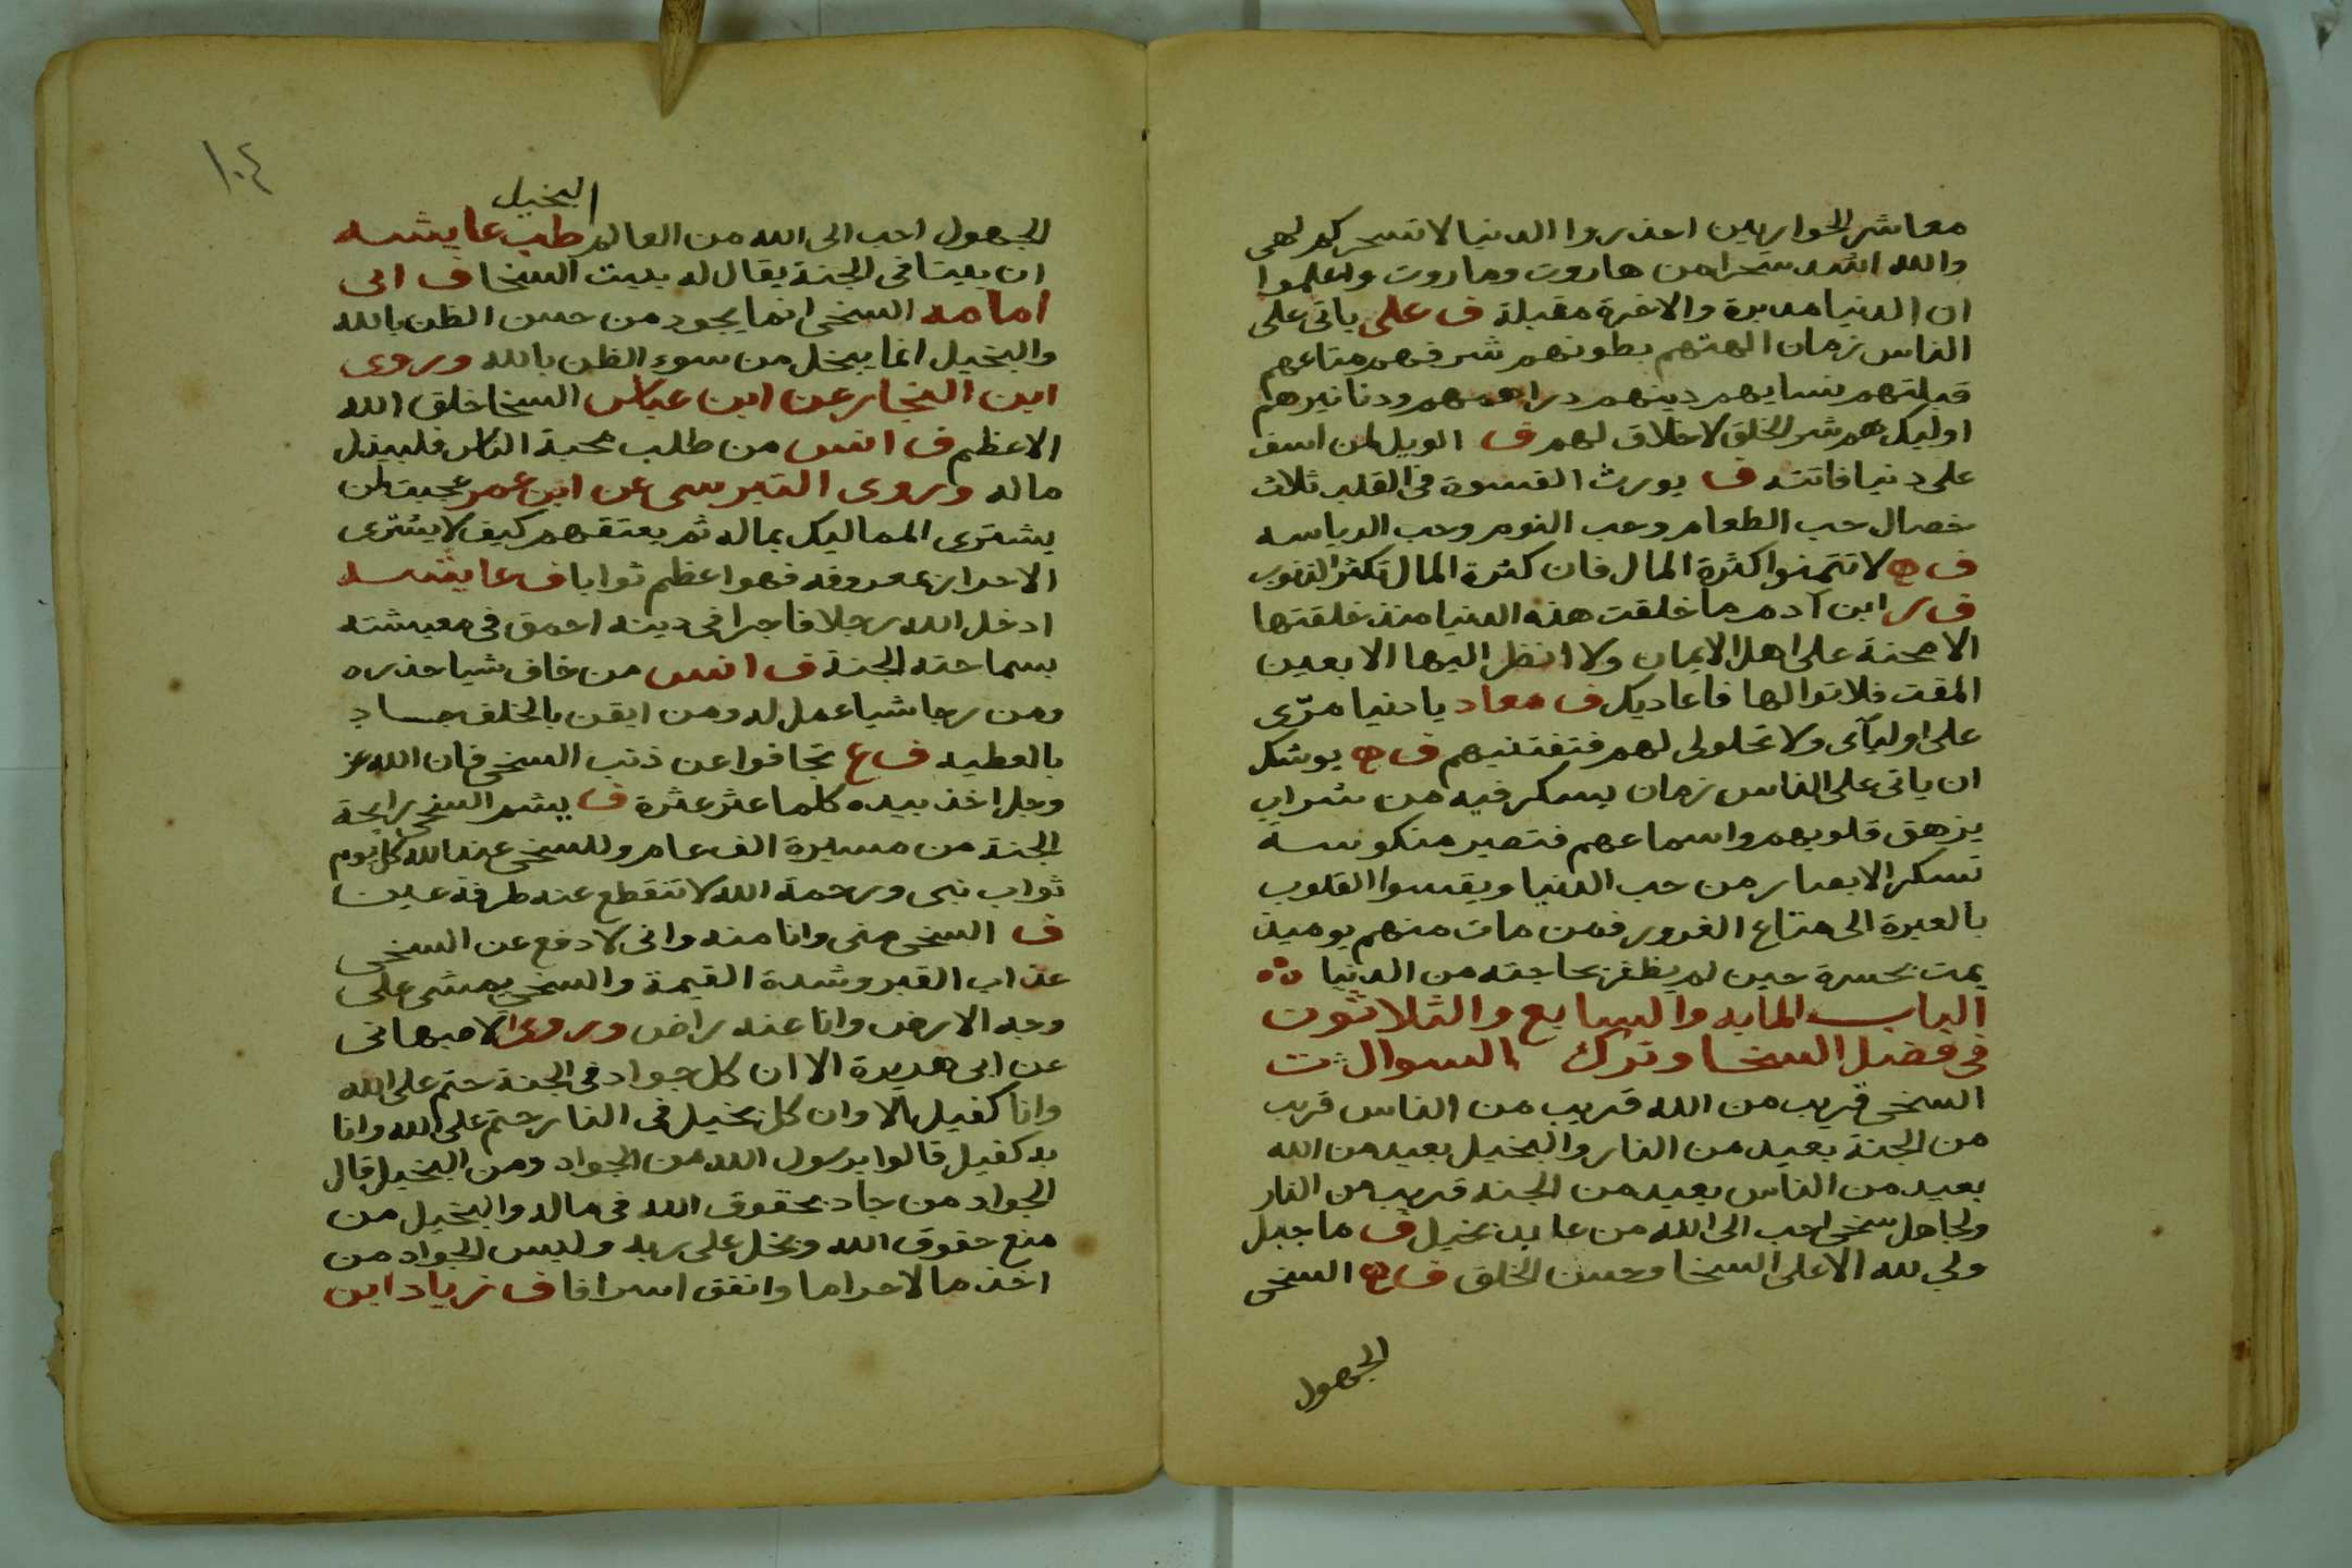 معاشر الحواريين احذروا الدنيا لا تسحركم لهي
والله اشد سحرا من هاروت وماروت واعلموا
ان الدنيا مدبرة والاخرة مقبلة ف علي ياتى على
الناس زمان الهتهم بطونهم شرفهم متاعهم
قبلتهم نسايهم دينهم دراهمهم ودنانيرهم
اوليك هم شر الخلق لا خلاق لهم ف الويل لمن اسف
على دنيا فاتته ف يورث القسوة فى القلب ثلاث
خصال حب الطعام وحب النوم وحب الرياسه
ف لا تتمنوا كثرة المال فان كثرة المال تكثر الذنوب
ف ر ابن آدم ما خلقت هذه الدنيا منذ خلقتها
الا محنة على اهل الايمان ولا انظر اليها الا بعين
المقت فلا توالها فاعاديك ف معاد يا دنيا مرّى
على اوليآى ولا تحلولى لهم فتفتنيهم ف ه يوشك
ان ياتى على الناس زمان يسكر فيه من شراب
يزهق قلوبهم واسماعهم فتصير منكوسة
تسكر الابصار من حب الدنيا ويقسوا القلوب
بالعبرة الى متاع الغرور فمن مات منهم يوميذ
يمت بحسرة حين لم يظفر بحاجته من الدنيا
الباب المايه والسابع والثلاثون
فى فضل السخا وترك السوال
السخى قريب من الله قريب من الناس قريب
من الجنة بعيد من النار والبخيل بعيد من الله
بعيد من الناس بعيد من الجنه قريب من النار
ولجاهل سخى احب الى الله من عابد بخيل ف ما جبل
ولي لله الا على السخا وحسن الخلق ف السخى
الجهول
١٠٤
البخيل
الجهول احب الى الله من العالم طب عايشه
ان بيتا فى الجنة يقال له بيت السخا ف ابى
امامه السخى انما يجود من حسن الظن بالله
والبخيل انما يبخل من سوء الظن بالله وروى
ابن النجار عن ابن عباس السخا خلق الله
الاعظم ف انس من طلب محبة الناس فليبذل
ماله وروى النرسى عن ابن عمر عجبت لمن
يشترى المماليك بماله ثم يعتقهم كيف لا يشترى
الاحرار بمعروفه فهو اعظم ثوابا ف عايشه
ادخل الله رجلا فاجرا فى دينه احمق فى معيشته
بسماحته الجنة ف انس من خاف شيا حذره
ومن رجا شيا عمل له ومن ايقن بالخلف جاد
بالعطيه ف ع تجافوا عن ذنب السخى فان الله عز
وجل اخذ بيده كلما عثر عثرة ف يشم السخى رايحة
الجنة من مسيرة الف عام وللسخى عند الله كل يوم
ثواب نبى ورحمة الله لا تنقطع عنه طرفة عين
ف السخى منى وانا منه وانى لادفع عن السخى
عذاب القبر وشدة القيمة والسخى يمشى على
وجه الارض وانا عنه راض وروى الاصبهانى
عن ابى هريرة الا ان كل جواد فى الجنة حتم على الله
وانا كفيل الا وان كل بخيل فى النار حتم على الله وانا
به كفيل قالوا يرسول الله من الجواد ومن البخيل قال
الجواد من جاد بحقوق الله فى ماله والبخيل من
منع حقوق الله وبخل على ربه وليس الجواد من
اخذ مالا حراما وانفق اسرافا ف زياد ابن